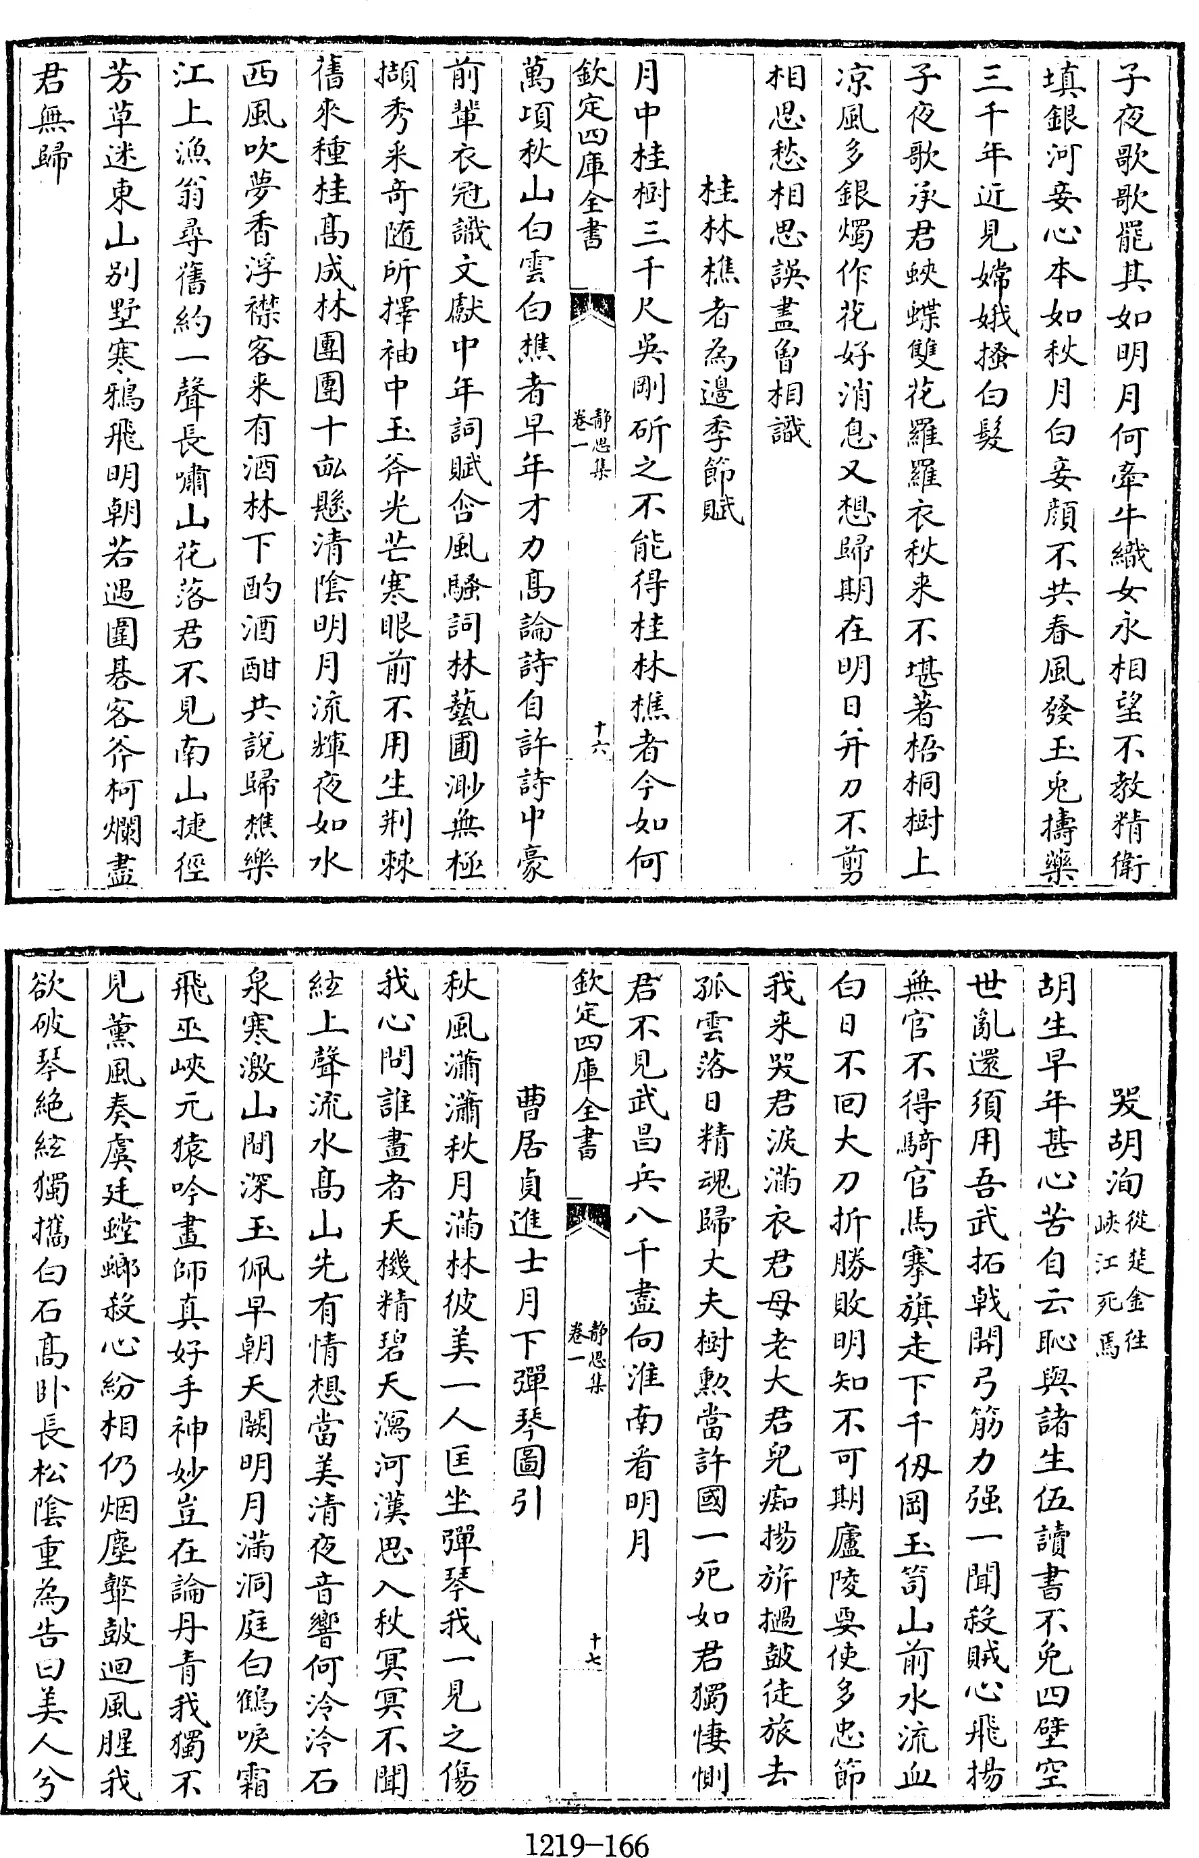 子夜歌歌罷其如明月何牽牛織女永相望不教精衛
填銀河妾心本如秋月白妾顔不共春風發玉兎擣藥
三千年近見嫦娥搔白髮
子夜歌承君蛺蝶雙花羅羅衣秋来不堪著梧桐樹上
凉風多銀燭作花好消息又想歸期在明日并刀不剪
相思愁相思誤盡曾相識
桂林樵者為邊季節賦
月中桂樹三千尺吳剛斫之不能得桂林樵者今如何
欽定四庫全書
靜思集
卷一
十六
萬頃秋山白雲白樵者早年才力高論詩自許詩中豪
前輩衣冠識文獻中年詞賦含風騷詞林藝圃渺無極
擷秀采奇隨所擇袖中玉斧光芒寒眼前不用生荆棘
舊來種桂高成林團團十畝懸清陰明月流輝夜如水
西風吹夢香浮襟客来有酒林下酌酒酣共說歸樵樂
江上漁翁尋舊約一聲長嘯山花落君不見南山捷徑
芳草迷東山别墅寒鴉飛明朝若遇圍碁客斧柯爛盡
君無歸
哭胡洵從楚金往
峽江死焉
胡生早年甚心苦自云恥與諸生伍讀書不免四壁空
世亂還須用吾武拓㦸開弓筋力强一聞殺賊心飛揚
無官不得騎官馬搴旗走下千仭岡玉笥山前水流血
白日不回大刀折勝敗明知不可期廬陵要使多忠節
我来哭君淚滿衣君母老大君兒痴揚旂撾鼓徒旅去
孤雲落日精魂歸大夫樹勲當許國一死如君獨悽惻
君不見武昌兵八千盡向淮南看明月
欽定四庫全書
靜思集
卷一
十七
曹居貞進士月下彈琴圖引
秋風瀟瀟秋月滿林彼美一人匡坐彈琴我一見之傷
我心問誰畫者天機精碧天瀉河漢思入秋冥冥不聞
絃上聲流水高山先有情想當美清夜音響何泠泠石
泉寒激山間深玉佩早朝天闕明月滿洞庭白鶴唳霜
飛巫峽元猿吟畫師真好手神妙豈在論丹青我獨不
見薰風奏虞廷螳螂殺心紛相仍烟塵鼙鼓迴風腥我
欲破琴絶絃獨攜白石高卧長松陰重為告曰美人兮
1219-166